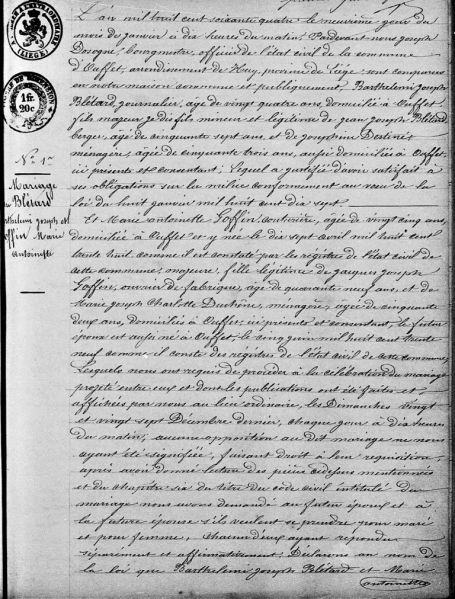 (LIEGE)
1fr.
20c.
N° 1er
Mariage
de Blétard
Barthelemi Joseph et
Goffin Marie
Antoinette
L'an mil huit cent soixante quatre le neuvième jour du
mois de janvier à dix heures du matin, Pardevant nous Joseph
Bourgmestre, officier de l'état civil de la commune
d'Ouffet, arrondissement de Huy, province de Liège sont comparus
en notre maison commune et publiquement, Barthelemi Joseph
Blétard, journalier, agé de vingt quatre ans, domicilié à Ouffet,
fils majeur et légitime de Jean Joseph Blétard
berger, agé de cinquante sept ans et de Josephine
ménagère, agée de cinquante trois ans, aussi domiciliés à Ouffet,
ici présents et consentant; Lequel a justifié d'avoir satisfait à
ses obligations sur la milice conformément au vœu de la
loi du huit janvier mil huit cent dix sept.
Et Marie Antoinette Goffin, couturière, agée de vingt cinq ans,
domiciliée à Ouffet et y née le dix sept avril mil huit cent
trente huit comme il est constaté par les registres de l'état civil de
cette commune, majeure, fille légitime de Jacques Joseph
Goffin, ouvrier de fabrique, agé de quarante neuf ans, et de
Marie Joseph Charlotte Duchêne, ménagère, agée de cinquante
deux ans, domiciliés à Ouffet, ici présents et consentant, le futur
époux est aussi né à Ouffet, le cinq juin mil huit cent trente
neuf comme il conste des registres de l'état civil de cette commune,
Lesquels nous ont requis de procéder à la célébration du mariage
projeté entre eux et dont les publications ont été faites et
affichées par nous au lieu ordinaire, les Dimanches vingt
et vingt sept Décembre dernier, chaque jour à dix heures
du matin, aucune opposition au dit mariage ne nous
ayant été signifiée, faisant droit à leur requisition,
après avoir donné lecture des pièces cidessus mentionnées
et du chapitre six du titre du code civil intitulé du
mariage nous avons demandé au futur époux et à
la future épouse s'ils veulent se prendre pour mari
et pour femme, chacun d'eux ayant répondu
séparément et affirmativement; Déclarons au nom de
la loi que Barthelemi Joseph Blétard et Marie
Antoinette